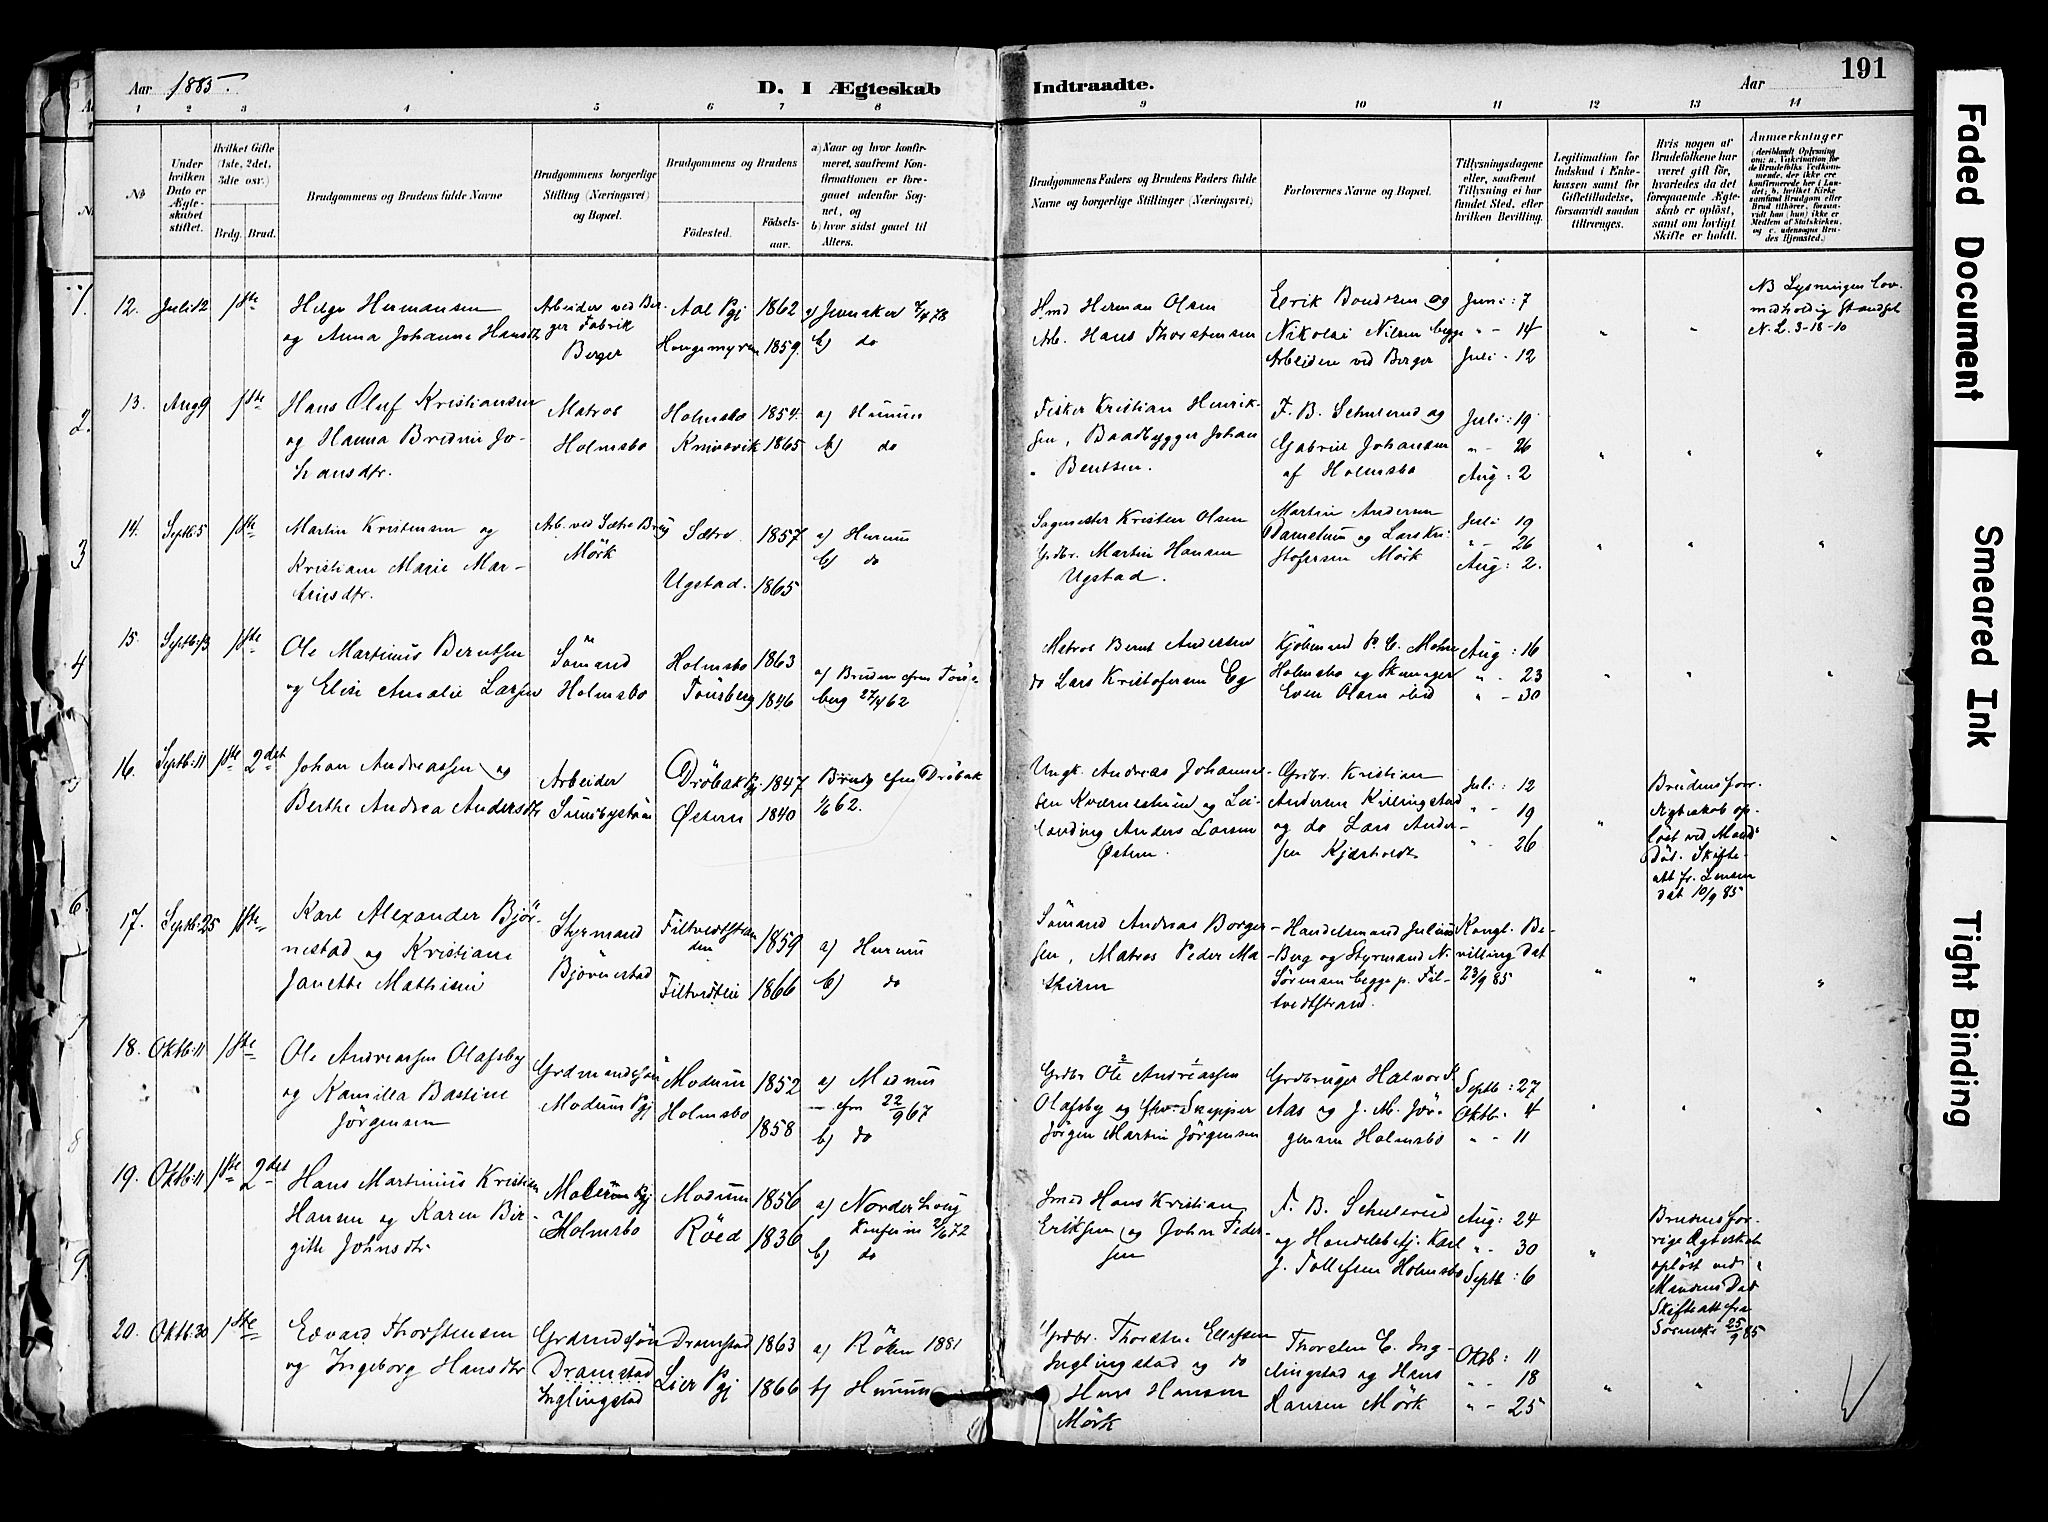 Aar 1885.
D. I Ægteskab
Indtraadte.
Aar
191
1 2 3 4 5 6 7 8 9 10 11 12 13 14
No
Under hvilken Dato er Ægteskabet stiftet.
Hvilket Gifte (1ste, 2det, 3die osv.)
Brdg. Brud.
Brudgommens og Brudens fulde Navne
Brudgommens borgerlige Stilling (Næringsvei) og Bopæl.
Brudgommens og Brudens
Födested.
Födsels-aar.
a) Naar og hvor konfirmeret, saafremt Konfirmationen er foregaaet udenfor Sognet, og
b) hvor sidst gaaet til Alters.
Brudgommens Faders og Brudens Faders fulde Navne og borgerlige Stillinger (Næringsvei)
Forlovernes Navne og Bopæl.
Tillysningsdagene eller, saafremt Tillysning ei har fundet Sted, efter hvilken Bevilling.
Legitimation for Indskud i Enkekassen samt for Giftetilladelse, forsaavidt saadan tiltrænges.
Hvis nogen af Brudefolkene har været gift før, hvorledes da det foregaaende Ægteskab er opløst, samt om lovligt Skifte er holdt.
Anmærkninger
(deriblandt Oplysning om: a. Vakcination for de Brudefolks Vedkommende, der ikke ere konfirmerede her i Landet; b. hvilket Kirkesamfund Brudgom eller Brud tilhører, forsaavidt han (hun) ikke er Medlem af Statskirken, og c. udensogns Brudes Hjemsted.)
12. Juli 12 1ste
Helge Hermansen
og Anna Johanne Hansdtr
Arbeider ved Ber-
ger Fabrik
Berger
Aal Pgj 1862
1859.
b) do
Hmd Herman Olsen
Arb. Hans Thorstensen
Nikolai Nilsen begge
Arbeidere ved Berger
Juni: 7
" - 14
Juli - 12
N. L. 3-18-10
13. Aug 9 1ste
Hans Oluf Kristiansen
og Hanna Bredine Jo-
hansdtr.
Matros
Holmsbo
Holmsbo 1854.
Knivsvik 1865
a) Hurum
b) do
Fisker Kristian Henrik-
sen, Baadbygger Johan
" Bentsen.
F. B. Schulerud og
Gabriel Johansen
af Holmsbo
Juli: 19
" - 26
Aug: 2
14. Septb: 5 1ste
Martin Kristensen og
Kristiane Marie Mar-
tinsdtr.
Arb. ved Sætre Brug
Mörk
Sætre 1857
Ugstad. 1865
a) Hurum
b) do
Sagmester Kristen Olsen
Grdbr. Martin Hansen
Ugstad.
Martin Andersen
og Lars Kri-
stofersen Mörk
Juli 19
" - 26
Aug: 2.
15. Septb: 13 1ste
Ole Martinius Berntsen
og Elise Amalie Larsen
Sömand
Holmsbo
Holmsbo 1863
Tönsberg 1846
a) Bruden efm Töns-
berg 27/4 62
Matros Bernt Andersen
do Lars Kristofersen Eg
Kjöbmand P. C. Mohn
Holmsbo og
Even Olsen ibid
Aug: 16
" - 23
" - 30
16. Septb: 11 1ste 2det
Johan Andreassen og
Berthe Andrea Andersdtr
Arbeider
Dröbak Pgj. 1847
Østern 1840
Brud efm Dröbak
62.
Ungk. Andreas Johanne-
sen Kværnestuen og Lei-
lænding Anders Larsen
Østern.
Grdbr. Kristian
Andersen Killingstad
og do Lars Ander-
sen Kjærholdt
Juli: 12
" - 19
" - 26
Brudens for-
Ægteskab op-
löst ved Mand.
Död. Skifte-
att fr. Lensm
dat 10/9 85
17. Septb: 25 1ste
Karl Alexander Björ-
nestad og Kristiane
Janette Mathisen
Styrmand
Björnestad
1859
Filtvedteie 1866
a) Hurum
b) do
Sömand Andreas Borger-
sen, Matros Peder Ma-
thisen
Handelsmand Julius
Berg og Styrmand N.
Sörensen begge p. Fil-
tvedtstrand.
Kongl. Be-
villing dat
23/9 85
18. Oktb: 11 1ste
Ole Andreassen Olafsby
og Kamilla Bastine
Jörgensen
Grdmandssön
Modum Pgj
Modum 1852
Holmsbo 1858
a) Modum
- efm 22/9 67
b) do
Grdbr Ole Andreassen
Olafsby og fhv. Skipper
Jörgen Martin Jörgensen
Grdbruger Halvor S.
Aas og J. M. Jör-
gensen Holmsbo
Septb: 27
Oktb: 4
" - 11
19. Oktb: 11 1ste 2det
Hans Martinius Kristian
Hansen og Karen Bir-
gitte Johnsdtr
Holmsbo
Modum 1856
Röed 1836
a) Norderhoug
b) do
Smed Hans Kristian
Eriksen og John Peder-
sen
F. B. Schulerud
og Handelsbetj. Karl
J. Tollefsen Holmsbo
Aug: 24
" - 30
Septb: 6
Brudens for-
rige Ægteskab
oplöst ved
Mandens Död
Skifteatt fra
Sorensk: 25/9 85
20. Oktb: 30 1ste
Edvard Thorstensen
og Ingeborg Hansdtr
Grdmandssön
Dramstad
Inglingstad
Dramstad 1863
Lier Pgj 1866
a) Röken 1881
b) Hurum
Grdbr. Thorsten Ellefsen
Inglingstad og do
Hans Hansen
Mörk
Thorsten E. Ing-
lingstad og Hans
Hansen Mörk
Oktb: 11
" - 18
" - 25
Faded Document
Smeared Ink
Tight Binding